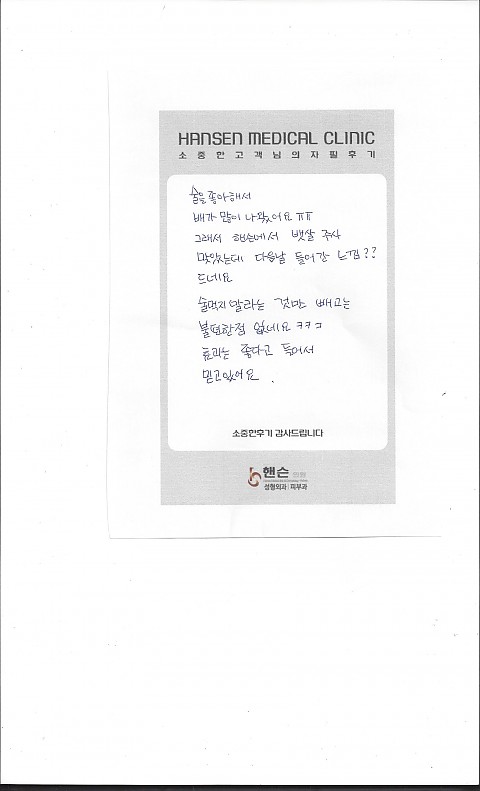 HANSEN MEDICAL CLINIC
소중한고객님의자필후기
술을 좋아해서
배가 많이 나왔어요 ㅠㅠ
그래서 핸슨에서 뱃살 주사
맞았는데 다음날 들어간 느낌??
드네요
술먹지말라는 것만 빼고는
불편한점 없네요 ㅋㅋㅋ
효과는 좋다고 들어서
믿고있어요.
소중한후기 감사드립니다
핸슨
성형외과|피부과